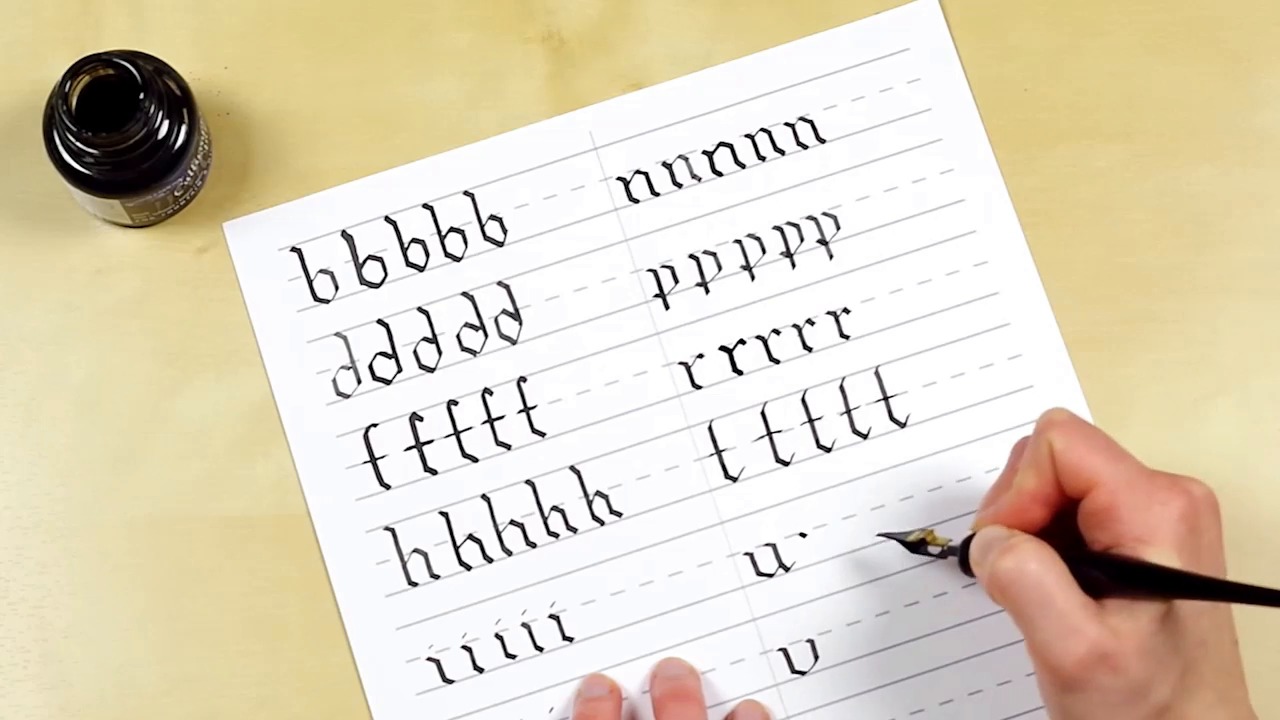 bbbbb
ddddd
fffff
hhhhh
iiiii
nnnnn
ppppp
rrrrr
ttttt
u
v